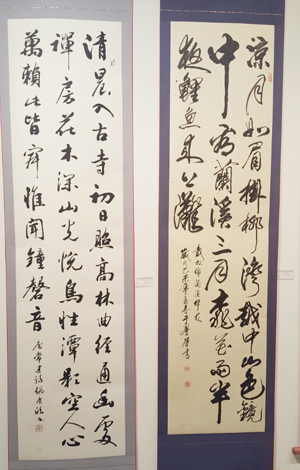 涼月如眉掛柳灣越中山色鏡
中看蘭溪三月桃花雨半
夜鯉魚來上灘
戴叔倫蘭溪棹歌
歲次乙未年
清晨入古寺初日照高林曲徑通幽處
禪房花木深山光悅鳥性潭影空人心
萬籟此皆寂惟聞鐘磬音
唐常建詩